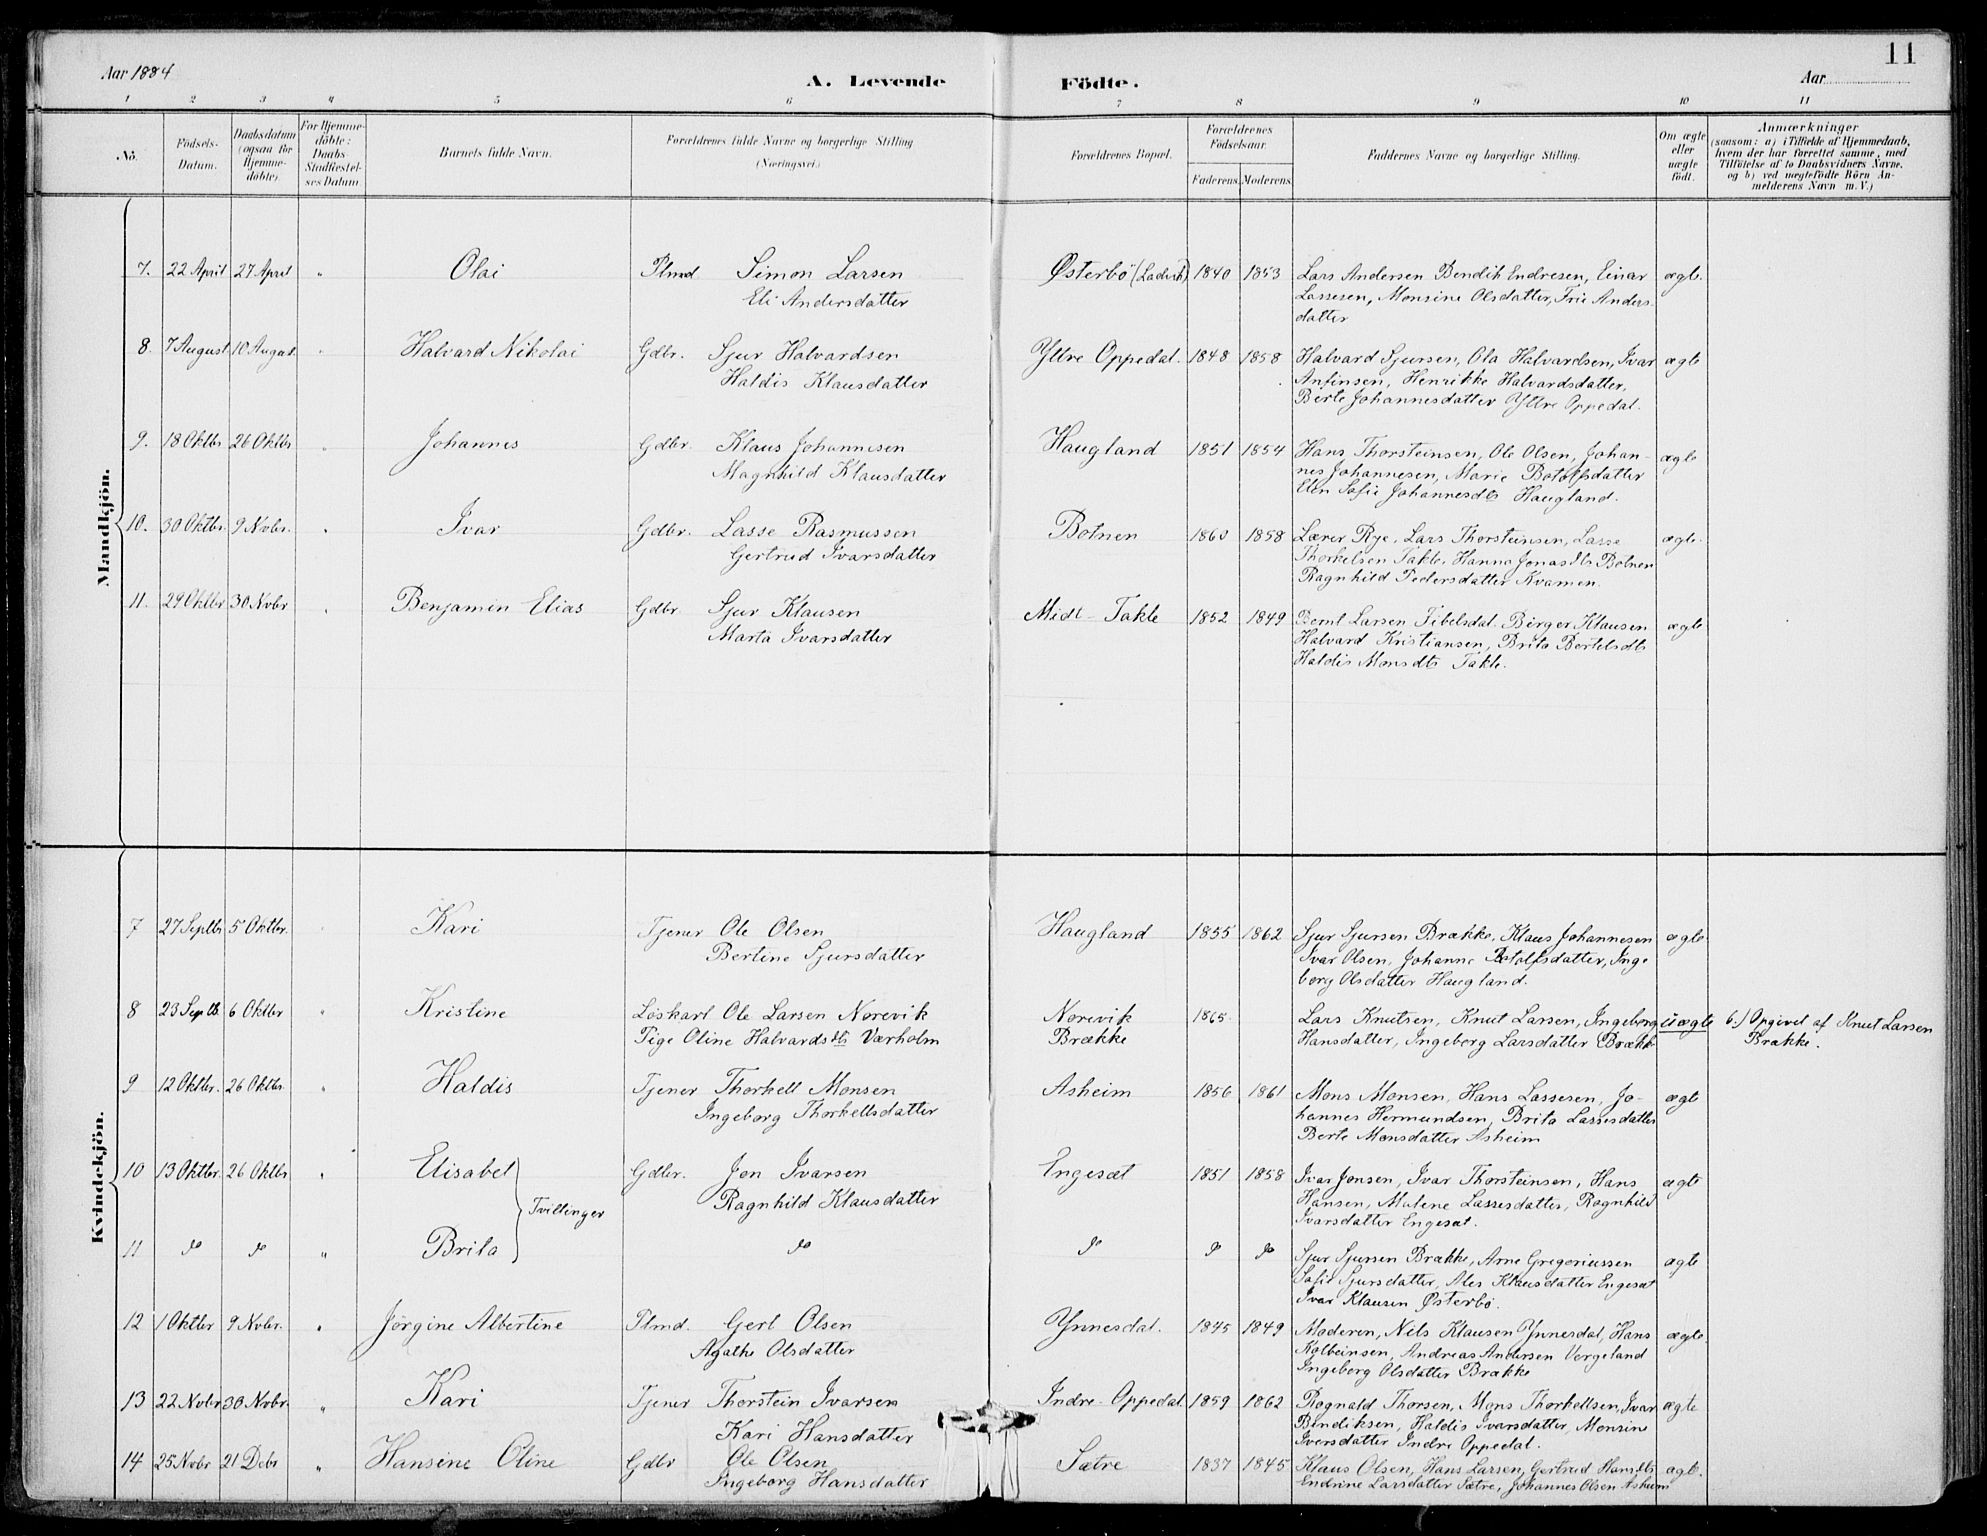 Aar 1884
A. Levende Födte.
Aar
11
1 2 3 4 5 6 7 8 9 10 11
No.
Födsels-Datum.
Daabsdatum (ogsaa for Hjemme-döbte).
For Hjemme-döbte: Daabs Stadfæstel-ses Datum.
Barnets fulde Navn.
Forældrenes fulde Navne og borgerlige Stilling (Næringsvei.)
Forældrenes Bopæl.
Forældrenes Födselsaar.
Faderens. Moderens.
Faddernes Navne og borgerlige Stilling.
Om ægte eller uægte födt.
Anmærkninger
(saasom: a) i Tilfælde af Hjemmedaab,
hvem der har forrettet samme, med
Tilföielse af to Daabsvidners Navne,
og b) ved uægtefödte Börn An-
melderens Navn m.V.)
Mandkjön.
7. 22 April 27 April " Olai Plmd Simon Larsen Østerbö (Ladvik) 1840 1853 Lars Andersen Bendik Endresen, Einar ægte.
Eli Andersdatter Lassesen, Monsine Olsdatter, Trie Anders
datter
8. 7 August 10 August. " Halvard Nikolai Gdbr. Sjur Halvardsen Yttre Oppedal. 1848 1858 Halvard Sjursen, Ola Halvardsen, Ivar ægte
Haldis Klausdatter Anfinsen, Henrikke Halvardsdatter,
Berte Johannesdatter Yttre Oppedal.
9. 18 Oktbr 26 Oktbr " Johannes Gdbr. Klaus Johannesen Haugland 1851 1854 Hans Thorsteinsen, Ole Olsen, Johan- ægte
Magnhild Klausdatter nes Johannesen, Marie Botolfsdatter
Elen Sofie Johannesdtr Haugland.
10. 30 Oktbr. 9 Nvbr. " Ivar Gdbr. Lasse Rasmussen Botnen 1860 1858 Lærer Rye, Lars Thorsteinsen, Lasse ægte.
Gertrud Ivarsdatter Thorkelsen Takle, Hanna Jonasdtr Botnen
Ragnhild Pedersdatter Kvamen.
11. 29 Oktbr 30 Nvbr " Benjamin Elias Gdbr Sjur Klausen Midt-Takle 1852 1849 Bernt Larsen Fibelsdal. Birger Klausen ægte
Marta Ivarsdatter Halvard Kristiansen, Brita Bertelsdtr
Haldis Monsdtr Takle.
Kvindekjön.
7 27 Septbr 5 Oktbr. " Kari Tjener Ole Olsen Haugland 1855 1862 Sjur Sjursen Brække, Klaus Johannesen ægte
Bertine Sjursdatter Ivar Olsen, Johanne Botolfsdatter, Inge
borg Olsdatter Haugland.
8 23 Septb. 6 Oktbr " Kristine Löskarl Ole Larsen Norevik Norevik 1865 Lars Knutsen, Knut Larsen, Ingeborg uægte 6.) Opgivet af Knut Larsen
Pige Oline Halvardsdtr Værholm Brække Hansdatter, Ingeborg Larsdatter Brække Brække.
9 12 Oktbr. 26 Oktbr. " Haldis Tjener Thorkell Monsen Asheim 1856 1861 Mons Monsen, Hans Lassesen, Jo- ægte
Ingeborg Thorkellsdatter hannes Hermundsen, Brita Lassesdatter
Berte Monsdatter Asheim
10 13 Oktbr. 26 Oktbr " Elisabet Gdbr. Jon Ivarsen Engesæt 1851 1858 Ivar Jonsen, Ivar Thorsteinsen, Hans ægte
Tvillinger Ragnhild Klausdatter Hansen, Malene Lassesdatter, Ragnhild
Ivarsdatter Engesæt.
11 do do " Brita do do do do Sjur Sjursen Brække, Arne Gregoriussen ægte
Sofie Sjursdatter, Ales Klausdatter Engesæt
Ivar Klausen Østerbö.
12 1 Oktbr 9 Nvbr. " Jörgine Albertine Plmd. Gert Olsen Ynnesdal. 1845 1849 Moderen, Nils Klausen Ynnesdal, Hans ægte.
Agathe Olsdatter Kolbeinsen, Andreas Andersen Vergeland
Ingeborg Olsdatter Brække
13 22 Nvbr 30 Nvbr. " Kari Tjener Thorstein Ivarsen Indre-Oppedal 1859 1862 Ragnald Thorsen, Mons Thorkellsen, Ivar ægte
Kari Hansdatter Bendiksen, Haldis Ivarsdatter, Monsine
Iversdatter Indre Oppedal.
14 25 Nvbr 21 Debr " Hansine Oline Gdbr Ole Olsen Sætre 1837 1845 Klaus Olsen, Hans Larsen, Gertrud Hansdtr ægte.
Ingeborg Hansdatter Endrine Larsdatter Sætre, Johannes Olsen Asheim